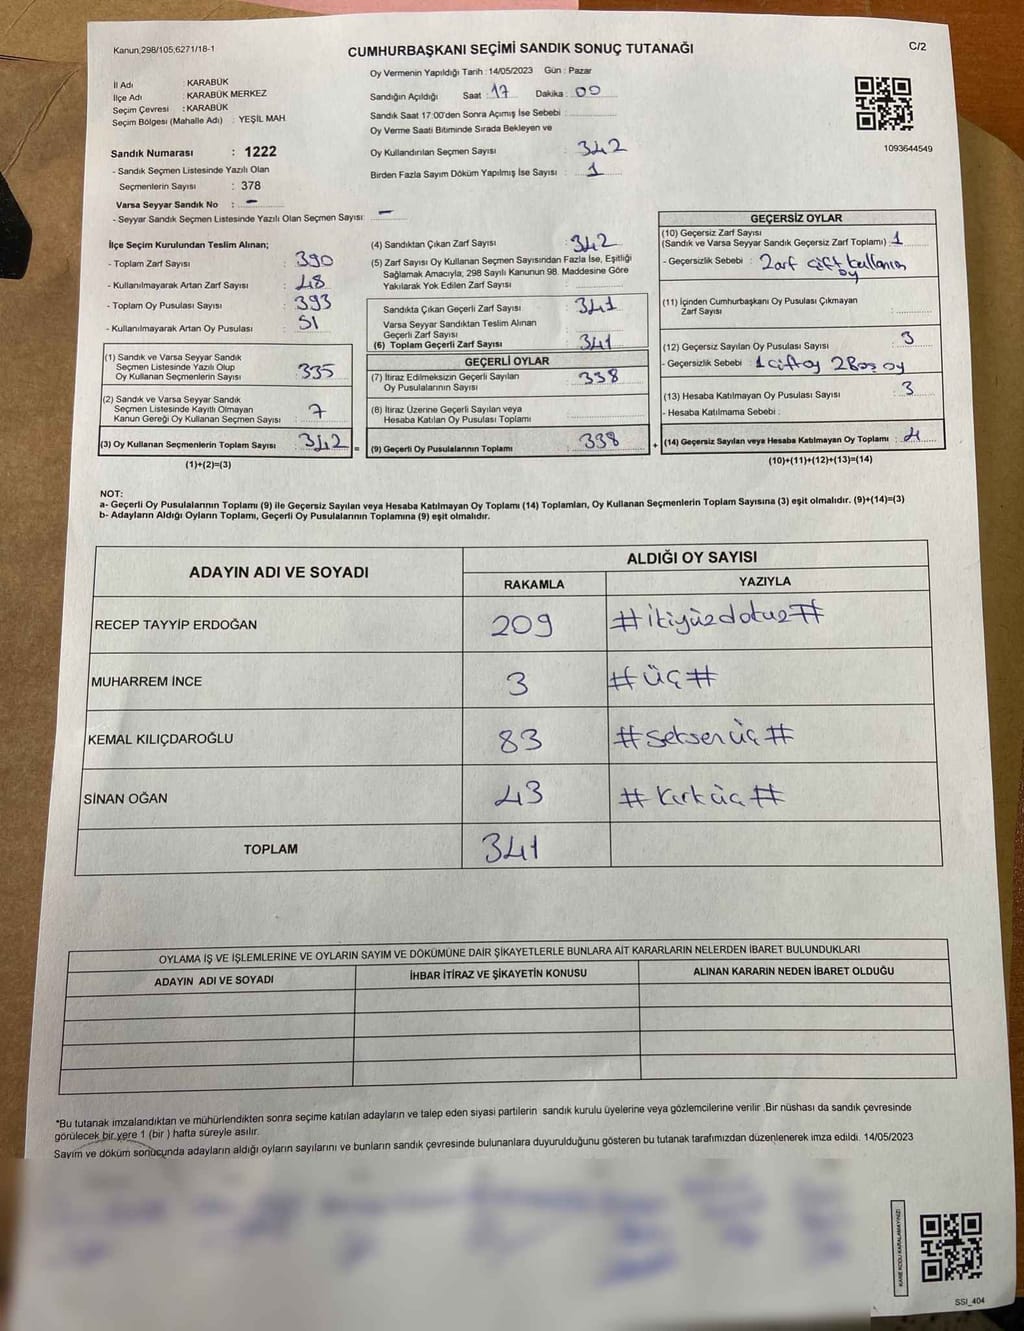 Kanun,298/105,6271/18-1
CUMHURBAŞKANI SEÇİMİ SANDIK SONUÇ TUTANAĞI
C/2
İl Adı KARABÜK
İlçe Adı KARABÜK MERKEZ
Seçim Çevresi : KARABÜK
Seçim Bölgesi (Mahalle Adı) : YEŞİL MAH.
Sandık Numarası : 1222
- Sandık Seçmen Listesinde Yazılı Olan
Seçmenlerin Sayısı : 378
Varsa Seyyar Sandık No : -
- Seyyar Sandık Seçmen Listesinde Yazılı Olan Seçmen Sayısı: -
Oy Vermenin Yapıldığı Tarih : 14/05/2023 Gün : Pazar
Sandığın Açıldığı Saat : 17 Dakika : 00
Sandık Saat 17:00'den Sonra Açımış İse Sebebi :
Oy Verme Saati Bitiminde Sırada Bekleyen ve
Oy Kullandırılan Seçmen Sayısı : 342
Birden Fazla Sayım Döküm Yapılmış İse Sayısı : 1
1093644549
İlçe Seçim Kurulundan Teslim Alınan;
- Toplam Zarf Sayısı : 390
- Kullanılmayarak Artan Zarf Sayısı : 48
- Toplam Oy Pusulası Sayısı : 393
- Kullanılmayarak Artan Oy Pusulası : 51
(1) Sandık ve Varsa Seyyar Sandık
Seçmen Listesinde Yazılı Olup
Oy Kullanan Seçmenlerin Sayısı : 335
(2) Sandık ve Varsa Seyyar Sandık
Seçmen Listesinde Kayıtlı Olmayan
Kanun Gereği Oy Kullanan Seçmen Sayısı : 7
(3) Oy Kullanan Seçmenlerin Toplam Sayısı : 342 =
(1)+(2)=(3)
(4) Sandıktan Çıkan Zarf Sayısı : 342
(5) Zarf Sayısı Oy Kullanan Seçmen Sayısından Fazla İse, Eşitliği
Sağlamak Amacıyla; 298 Sayılı Kanunun 98. Maddesine Göre
Yakılarak Yok Edilen Zarf Sayısı :
Sandıkta Çıkan Geçerli Zarf Sayısı : 341
Varsa Seyyar Sandıktan Teslim Alınan
Geçerli Zarf Sayısı :
(6) Toplam Geçerli Zarf Sayısı : 341
GEÇERLİ OYLAR
(7) İtiraz Edilmeksizin Geçerli Sayılan
Oy Pusulalarının Sayısı : 338
(8) İtiraz Üzerine Geçerli Sayılan veya
Hesaba Katılan Oy Pusulası Toplamı :
(9) Geçerli Oy Pusulalarının Toplamı : 338 +
GEÇERSİZ OYLAR
(10) Geçersiz Zarf Sayısı
(Sandık ve Varsa Seyyar Sandık Geçersiz Zarf Toplamı) : 1
- Geçersizlik Sebebi : Zarf çift kullanım
oy
(11) İçinden Cumhurbaşkanı Oy Pusulası Çıkmayan
Zarf Sayısı :
(12) Geçersiz Sayılan Oy Pusulası Sayısı : 3
- Geçersizlik Sebebi : 1 çift oy 2 Boş oy
(13) Hesaba Katılmayan Oy Pusulası Sayısı : 3
- Hesaba Katılmama Sebebi :
(14) Geçersiz Sayılan veya Hesaba Katılmayan Oy Toplamı : 4
(10)+(11)+(12)+(13)=(14)
NOT:
a- Geçerli Oy Pusulalarının Toplamı (9) ile Geçersiz Sayılan veya Hesaba Katılmayan Oy Toplamı (14) Toplamları, Oy Kullanan Seçmenlerin Toplam Sayısına (3) eşit olmalıdır. (9)+(14)=(3)
b- Adayların Aldığı Oyların Toplamı, Geçerli Oy Pusulalarının Toplamına (9) eşit olmalıdır.
ADAYIN ADI VE SOYADI ALDIĞI OY SAYISI
RAKAMLA YAZIYLA
RECEP TAYYİP ERDOĞAN 209 #ikiyüzdokuz#
MUHARREM İNCE 3 #üç#
KEMAL KILIÇDAROĞLU 83 #seksenüç#
SİNAN OĞAN 43 #kırküç#
TOPLAM 341
OYLAMA İŞ VE İŞLEMLERİNE VE OYLARIN SAYIM VE DÖKÜMÜNE DAİR ŞİKAYETLERLE BUNLARA AİT KARARLARIN NELERDEN İBARET BULUNDUKLARI
ADAYIN ADI VE SOYADI İHBAR İTİRAZ VE ŞİKAYETİN KONUSU ALINAN KARARIN NEDEN İBARET OLDUĞU
*Bu tutanak imzalandıktan ve mühürlendikten sonra seçime katılan adayların ve talep eden siyasi partilerin sandık kurulu üyelerine veya gözlemcilerine verilir .Bir nüshası da sandık çevresinde
görülecek bir yere 1 (bir ) hafta süreyle asılır.
Sayım ve döküm sonucunda adayların aldığı oyların sayılarını ve bunların sandık çevresinde bulunanlara duyurulduğunu gösteren bu tutanak tarafımızdan düzenlenerek imza edildi. 14/05/2023
KARE KODU KARALAMAYINIZ!
SSI_404